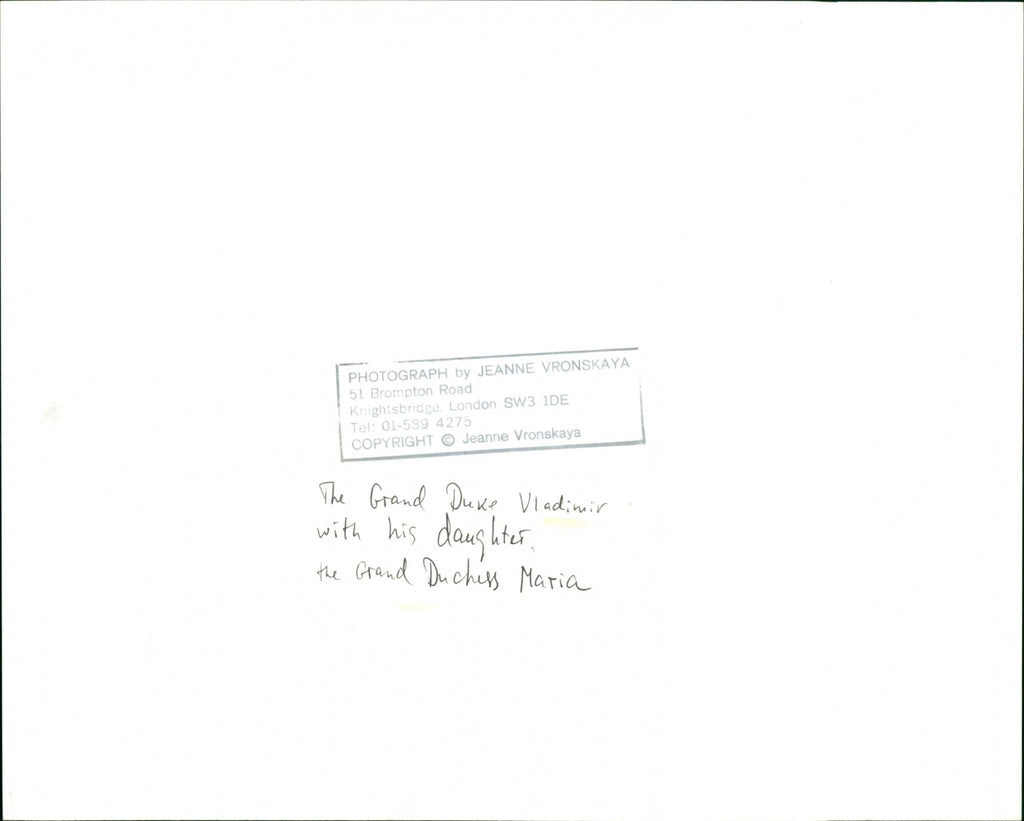 PHOTOGRAPH by JEANNE VRONSKAYA
51 Brompton Road
Knightsbridge, London SW3 1DE
Tel: 01-589 4275
COPYRIGHT © Jeanne Vronskaya
The Grand Duke Vladimir
with his daughter,
the Grand Duchess Maria